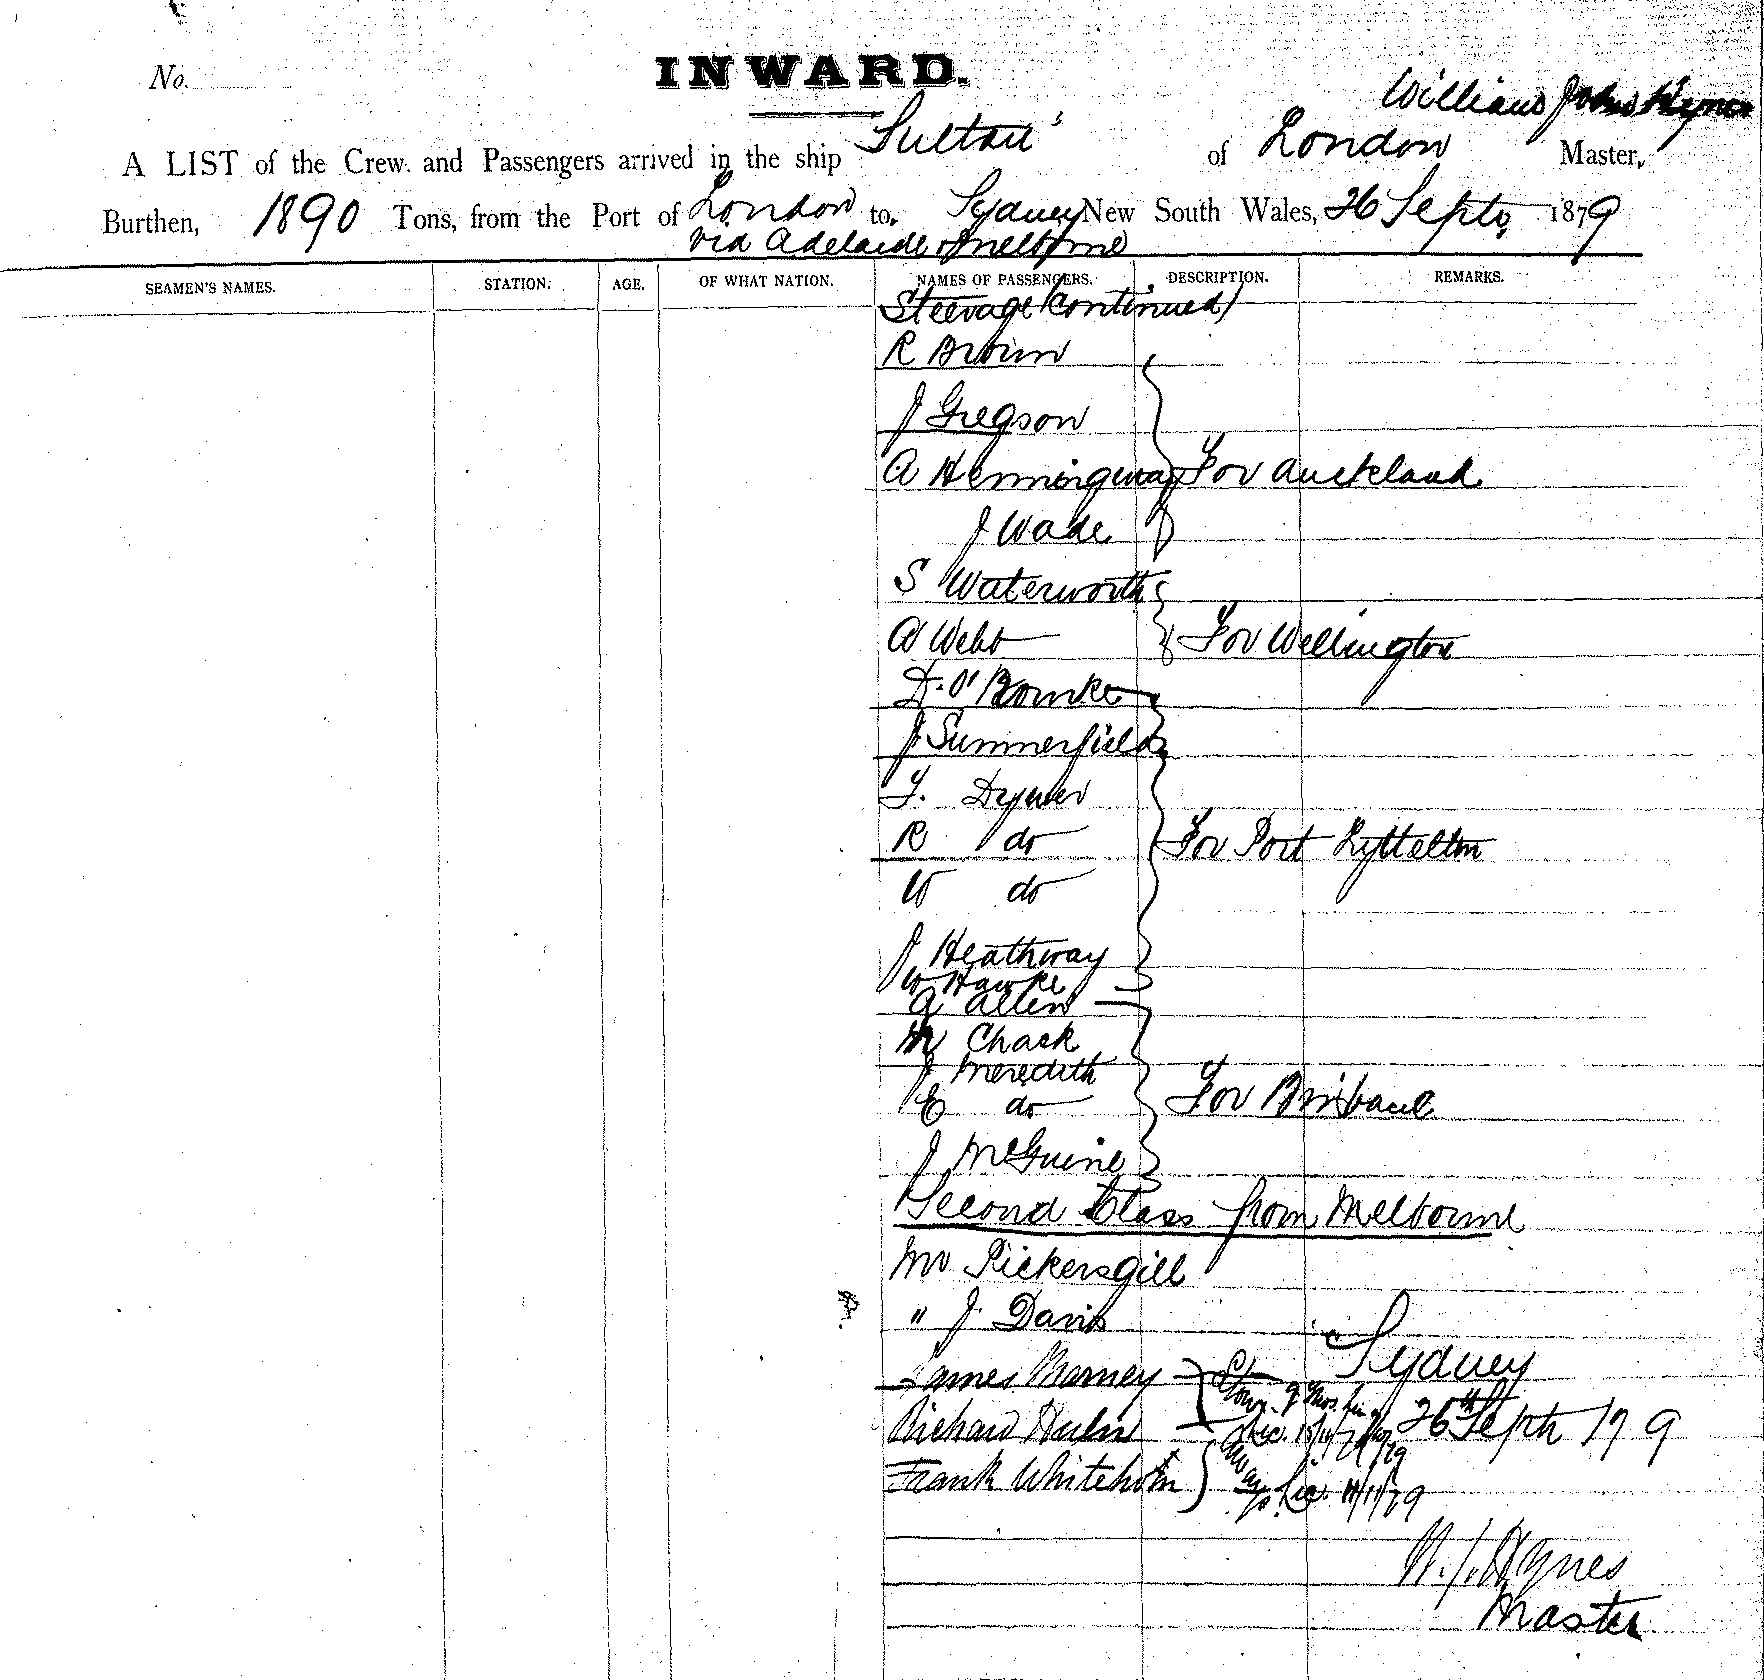 No.
INWARD.
William John Hynes
A LIST of the Crew and Passengers arrived in the ship Sultan of London Master,
Burthen, 1890 Tons, from the Port of London to Sydney New South Wales, 26 Septr 1879
via Adelaide & Melbourne
SEAMEN'S NAMES. STATION. AGE. OF WHAT NATION. NAMES OF PASSENGERS. DESCRIPTION. REMARKS.
Steerage (continued)
R Brown
J Gregson
A Hemmingway For Auckland
J Wade
S Waterworth
A Webb For Wellington
D. O'Bourke
J Summerfield
T. Dymer
R do For Port Lyttelton
W do
J Heathway
W Hawke
A Allen
M Chack
J Meredith
E do For Brisbane
J McGuire
Second Class from Melbourne
Mr Pickersgill
" J. Davis
Sydney
James Barney Stow.
Richard 26th Septr 1879
Frank Whitehorn 14/11/79
W. J. Hynes
Master